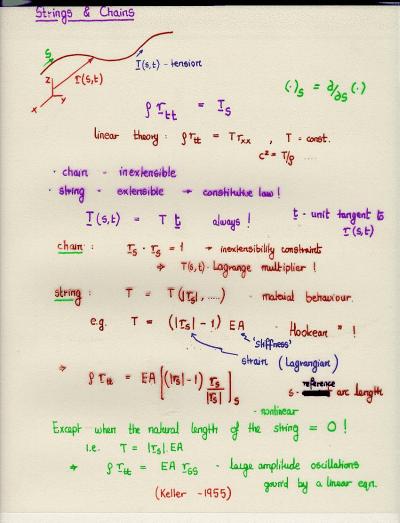 Strings & Chains
s
T(s,t) - tension
z
r(s,t)
y
x
(·)s = ∂/∂s (·)
ρ r_tt = T_s
linear theory : ρ r_tt = T r_xx , T = const.
c² = T/ρ ....
· chain - inextensible
· string - extensible → constitutive law !
T(s,t) = T t always ! t - unit tangent to r(s,t)
chain : r_s · r_s = 1 → inextensibility constraints
⇒ T(s,t) - Lagrange multiplier !
string : T = T(|r_s|, .....) - material behaviour.
e.g. T = (|r_s| - 1) EA - Hookean " !
'stiffness'
strain (Lagrangian)
⇒ ρ r_tt = EA [(|r_s| - 1) r_s/|r_s|]_s s - reference arc length
- nonlinear
Except when the natural length of the string = 0 !
i.e. T = |r_s| . EA
⇒ ρ r_tt = EA r_ss - large amplitude oscillations
gov'd by a linear eqn.
(Keller - 1955)